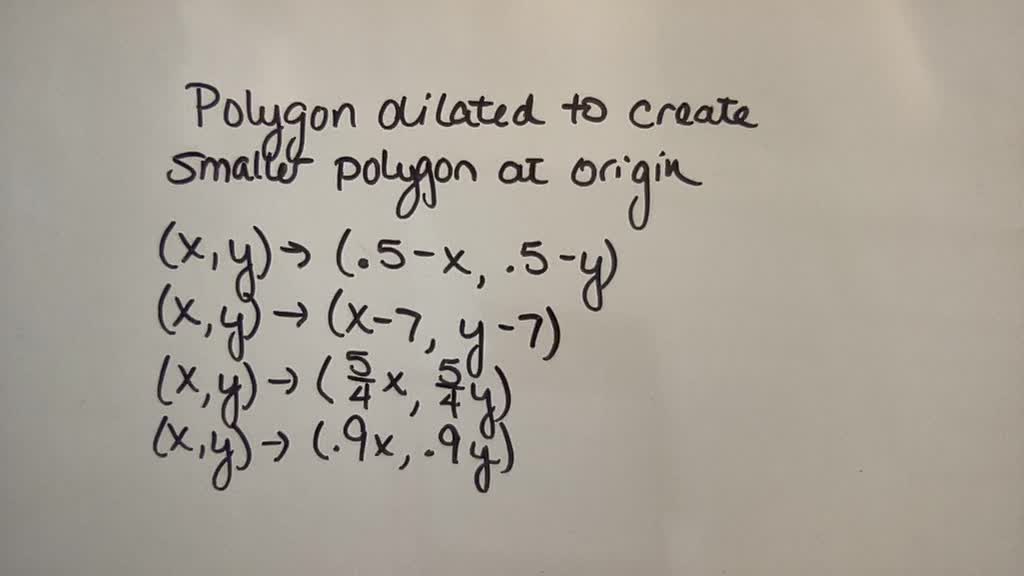 Polygon dilated to create
smaller polygon at origin
(x,y) → (.5-x, .5-y)
(x,y) → (x-7, y-7)
(x,y) → (5/4 x, 5/4 y)
(x,y) → (.9x, .9y)